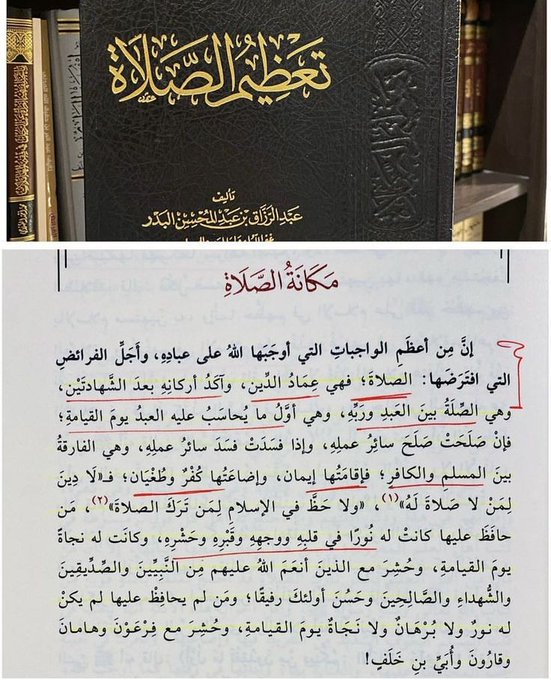 تعظيم الصلاة
تأليف
عبد الرزاق بن عبد المحسن البدر
مَكَانَةُ الصَّلَاةِ
إنَّ مِن أعظَمِ الواجباتِ التي أوجَبَها اللهُ على عبادِهِ، وأجَلِّ الفرائضِ
التي افترَضَها: الصلاةَ؛ فهي عِمَادُ الدِّين، وآكَدُ أركانِهِ بعدَ الشَّهادتَيْن،
وهي الصِّلَةُ بينَ العَبدِ ورَبِّهِ، وهي أوَّلُ ما يُحاسَبُ عليه العبدُ يومَ القيامةِ؛
فإنْ صَلَحَتْ صَلَحَ سائرُ عملِهِ، وإذا فسَدَتْ فسَدَ سائرُ عملِهِ، وهي الفارقةُ
بينَ المسلمِ والكافرِ؛ فإقامَتُها إيمان، وإضاعَتُها كُفْرٌ وطُغْيَان؛ فـ«لَا دِينَ
لِمَنْ لا صَلاةَ لَهُ»(١)، «ولا حَظَّ في الإسلامِ لِمَن تَرَكَ الصلاةَ»(٢)، مَن
حافَظَ عليها كانَتْ له نُورًا في قلبِهِ ووجهِهِ وقَبْرِهِ وحَشْرِهِ، وكانَت له نجاةً
يومَ القيامةِ، وحُشِرَ مع الذينَ أنعَمَ اللهُ عليهم مِن النَّبِيِّينَ والصِّدِّيقينَ
والشُّهداءِ والصَّالحينَ وحَسُنَ أولئكَ رفيقًا؛ ومَن لم يحافِظْ عليها لم يكنْ
له نورٌ ولا بُرْهَانٌ ولا نَجَاةٌ يومَ القيامةِ، وحُشِرَ مع فِرْعَوْنَ وهامانَ
وقارُونَ وأُبَيِّ بنِ خَلَفٍ!